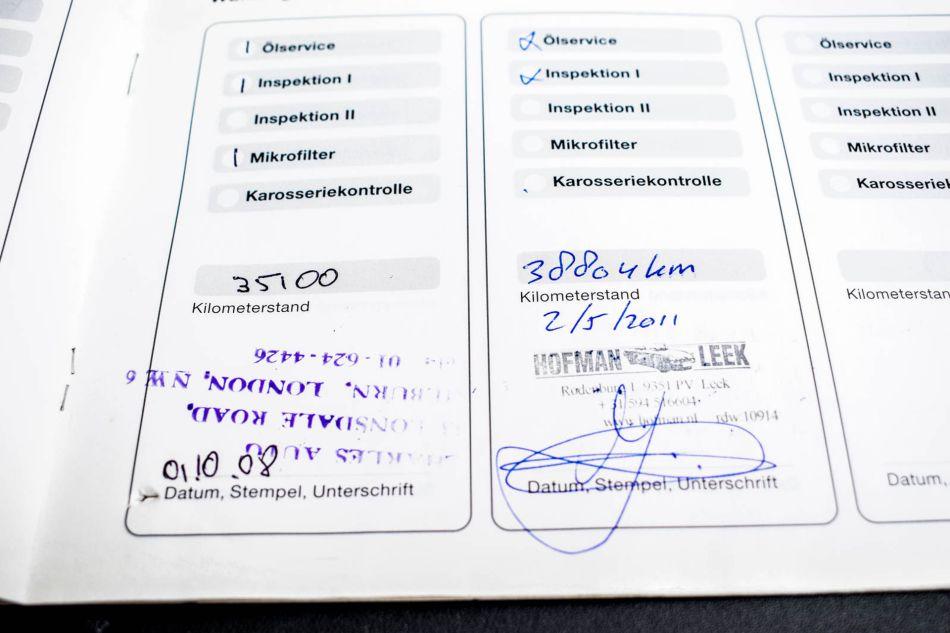 Ölservice
Inspektion I
Inspektion II
Mikrofilter
Karosseriekontrolle
35100
Kilometerstand
01-624-4426
LONDON, NW6
LONSDALE ROAD,
Datum, Stempel, Unterschrift
Ölservice
Inspektion I
Inspektion II
Mikrofilter
Karosseriekontrolle
38804 km
Kilometerstand
2/5/2011
HOFMAN LEEK
Rodenburg 1 9351 PV Leek
+31 594 516604
www.hofman.nl rdw 10914
Datum, Stempel, Unterschrift
Ölservice
Inspektion I
Inspektion II
Mikrofilter
Karosseriek
Kilometerstan
Datum,